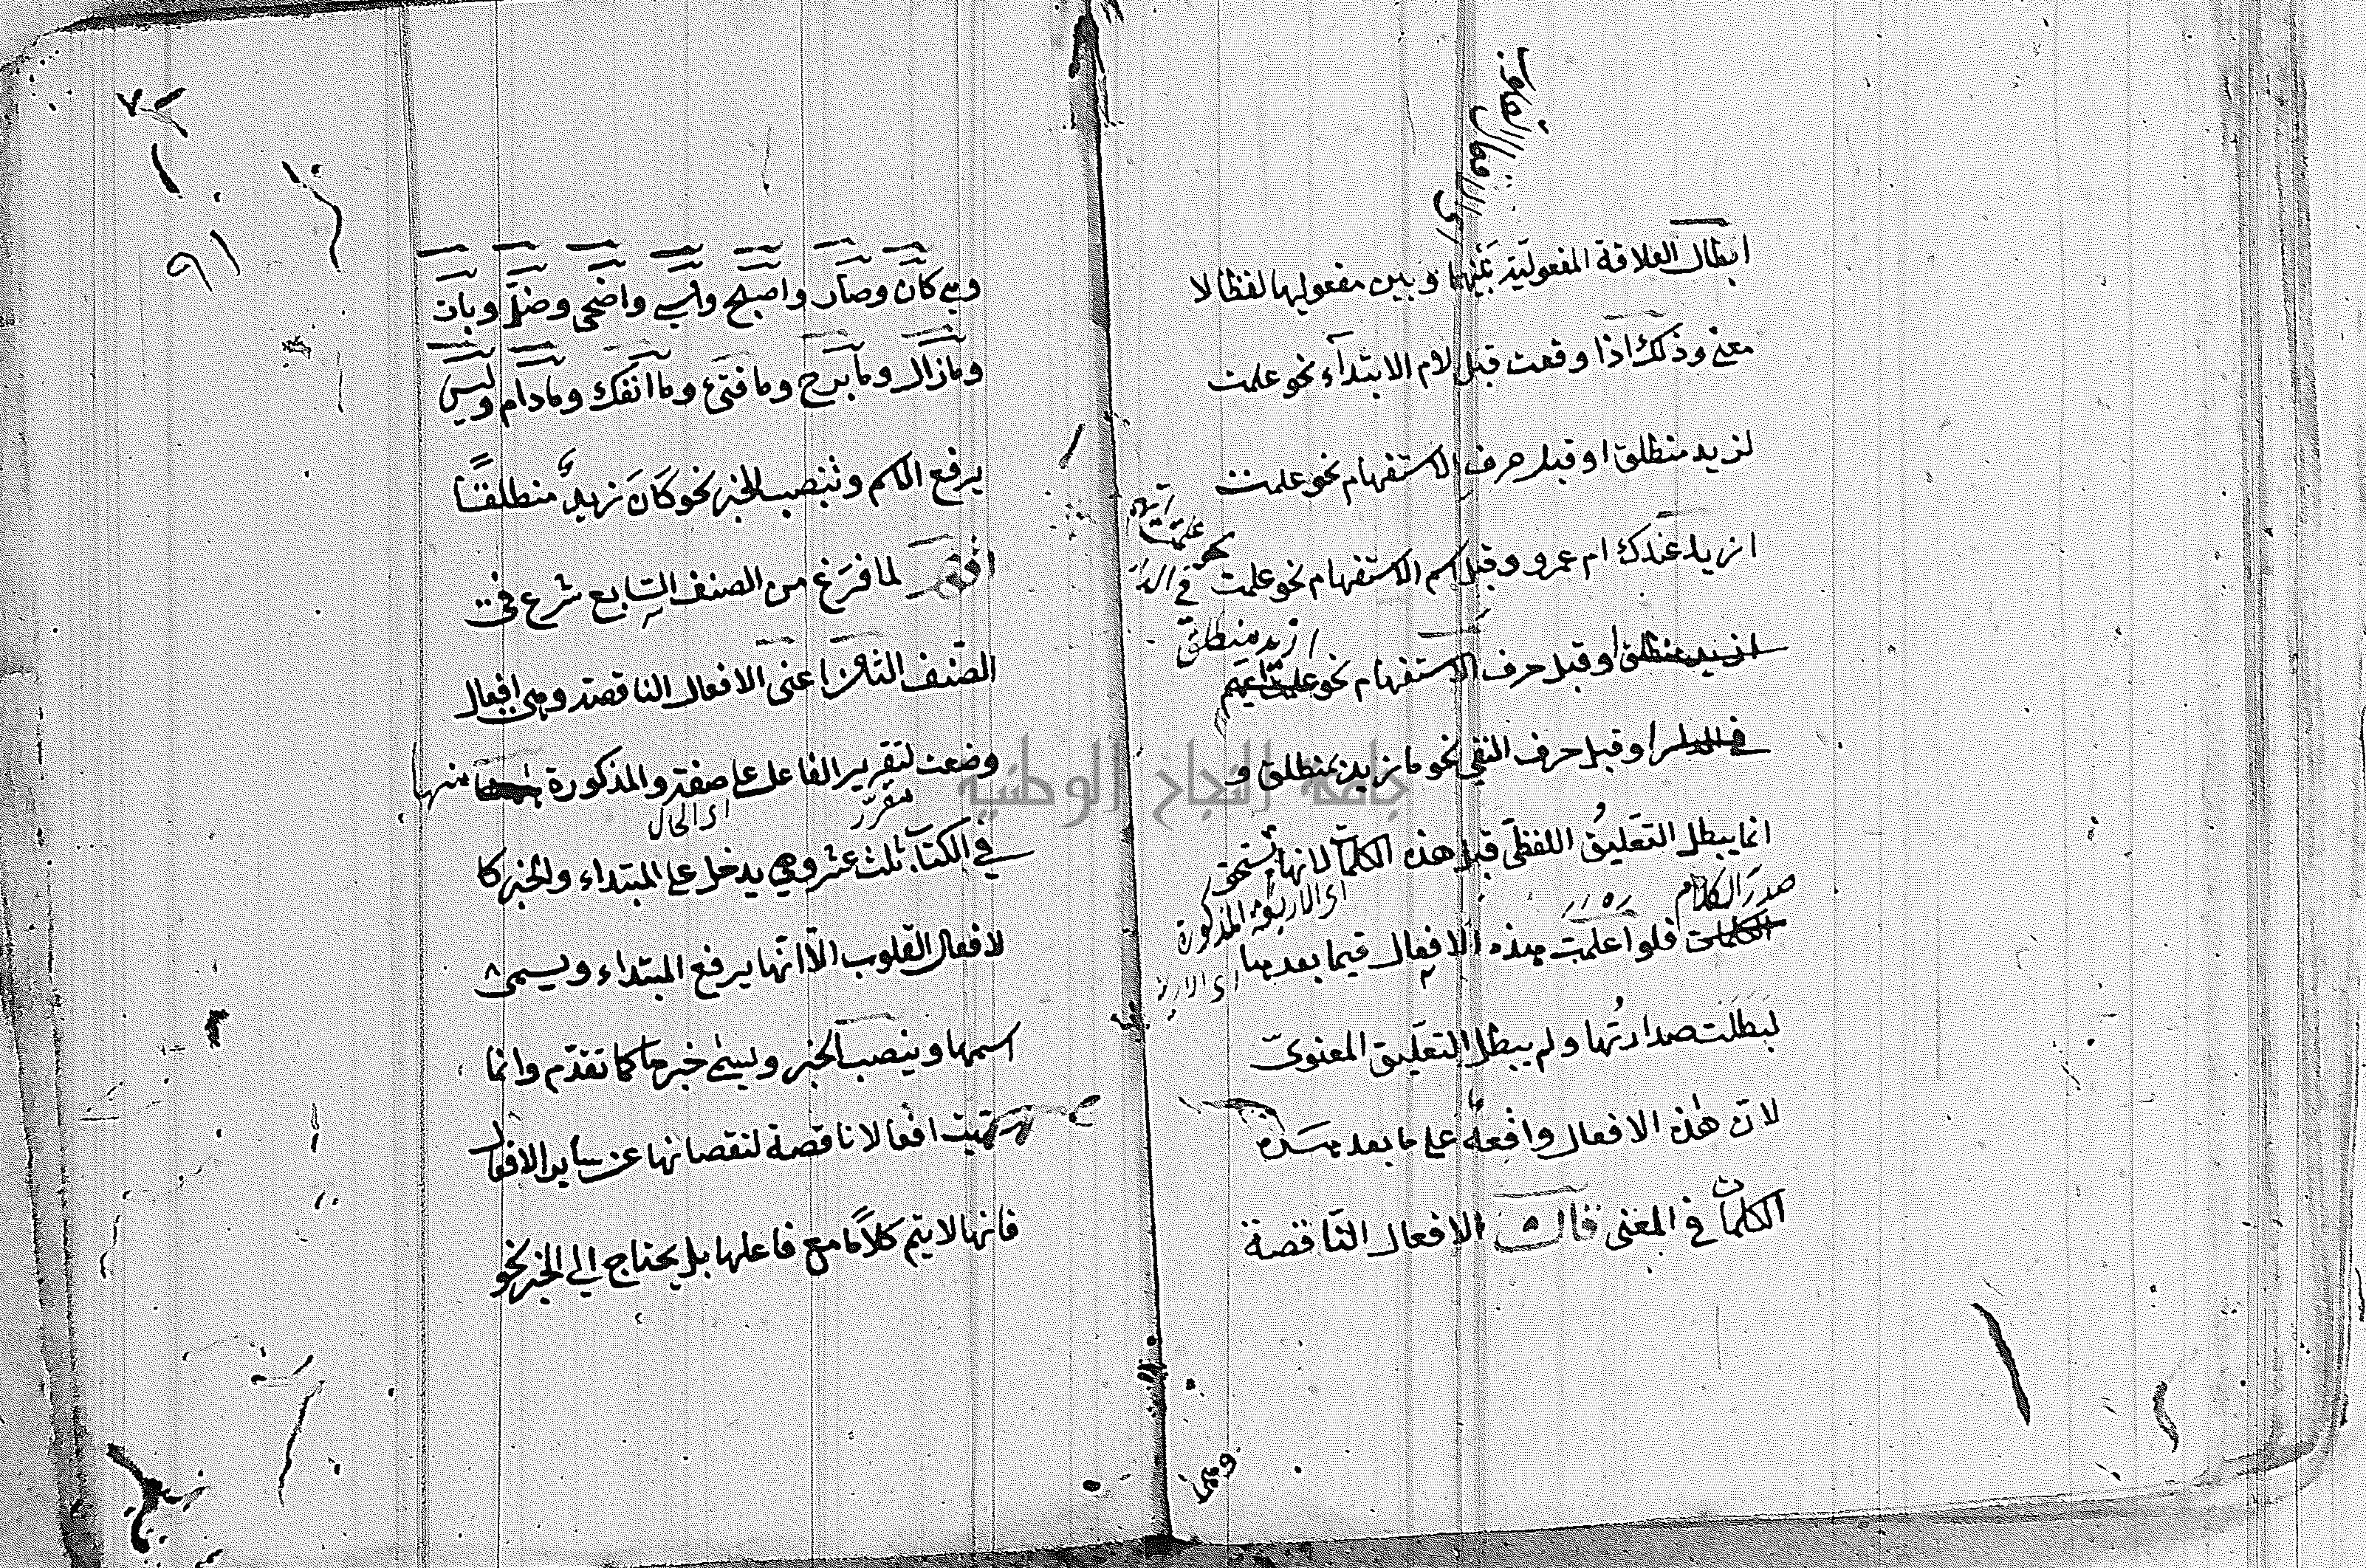 اى الافعال القلوب
ابطال العلاقة المفعولية بينها وبين مفعوليها لفظا لا
معنى وذلك اذا وقعت قبل لام الابتدآء نحو علمت
لزيد منطلق او قبل حرف الاستفهام نحو علمت
ازيد عندك ام عمرو وقبل اسم الاستفهام نحو علمت
نحو علمت ايهم في الدار
ازيد منطلق
ازيد منطلق او قبل حرف الاستفهام نحو علمت ايهم
في الدار او قبل حرف النفي نحو ما زيد بمنطلق و
انما يبطل التعليقُ اللفظى قبل هذه الكلمات لانها تستحق
صدرَ الكلام
اى الاربعة المذكورة
الكلمات فلو اعلمت هذه الافعال فيما بعدها
لبَطَلَت صدارتُها ولم يبطل التعليق المعنوىّ
لانّ هذه الافعال واقعة على ما بعد هذه
الكلمات في المعنى قال الافعال النّاقصة
وهى
٧٢
٩١
وهى كان وصار واصبح وامسى واضحى وضلّ وبات
وما زال وما برح وما فتئ وما انفك وما دام وليس
يرفع الاسم وينصب الخبر نحو كانَ زيدٌ منطلقًا
اقول لما فرَغ من الصنف السّابع شرع في
الصّنف الثامن اعنى الافعال الناقصة وهى افعال
وضعت لتقرير الفاعل على صفة والمذكورة منها
مقرّر
اى الحال
في الكتاب ثلث عشر وهى يدخل على المبتداء والخبر كا
لافعال القلوب الّا انّها يرفع المبتداء ويسمى
اسمها وينصب الخبر ويسمى خبرها كما تقدّم وانما
سمّيت افعالا ناقصة لنقصانها عن سايرالافعال
فانها لا يتم كلاًما مع فاعلها بل يحتاج الى الخبر نحو
جامعة النجاح الوطنية